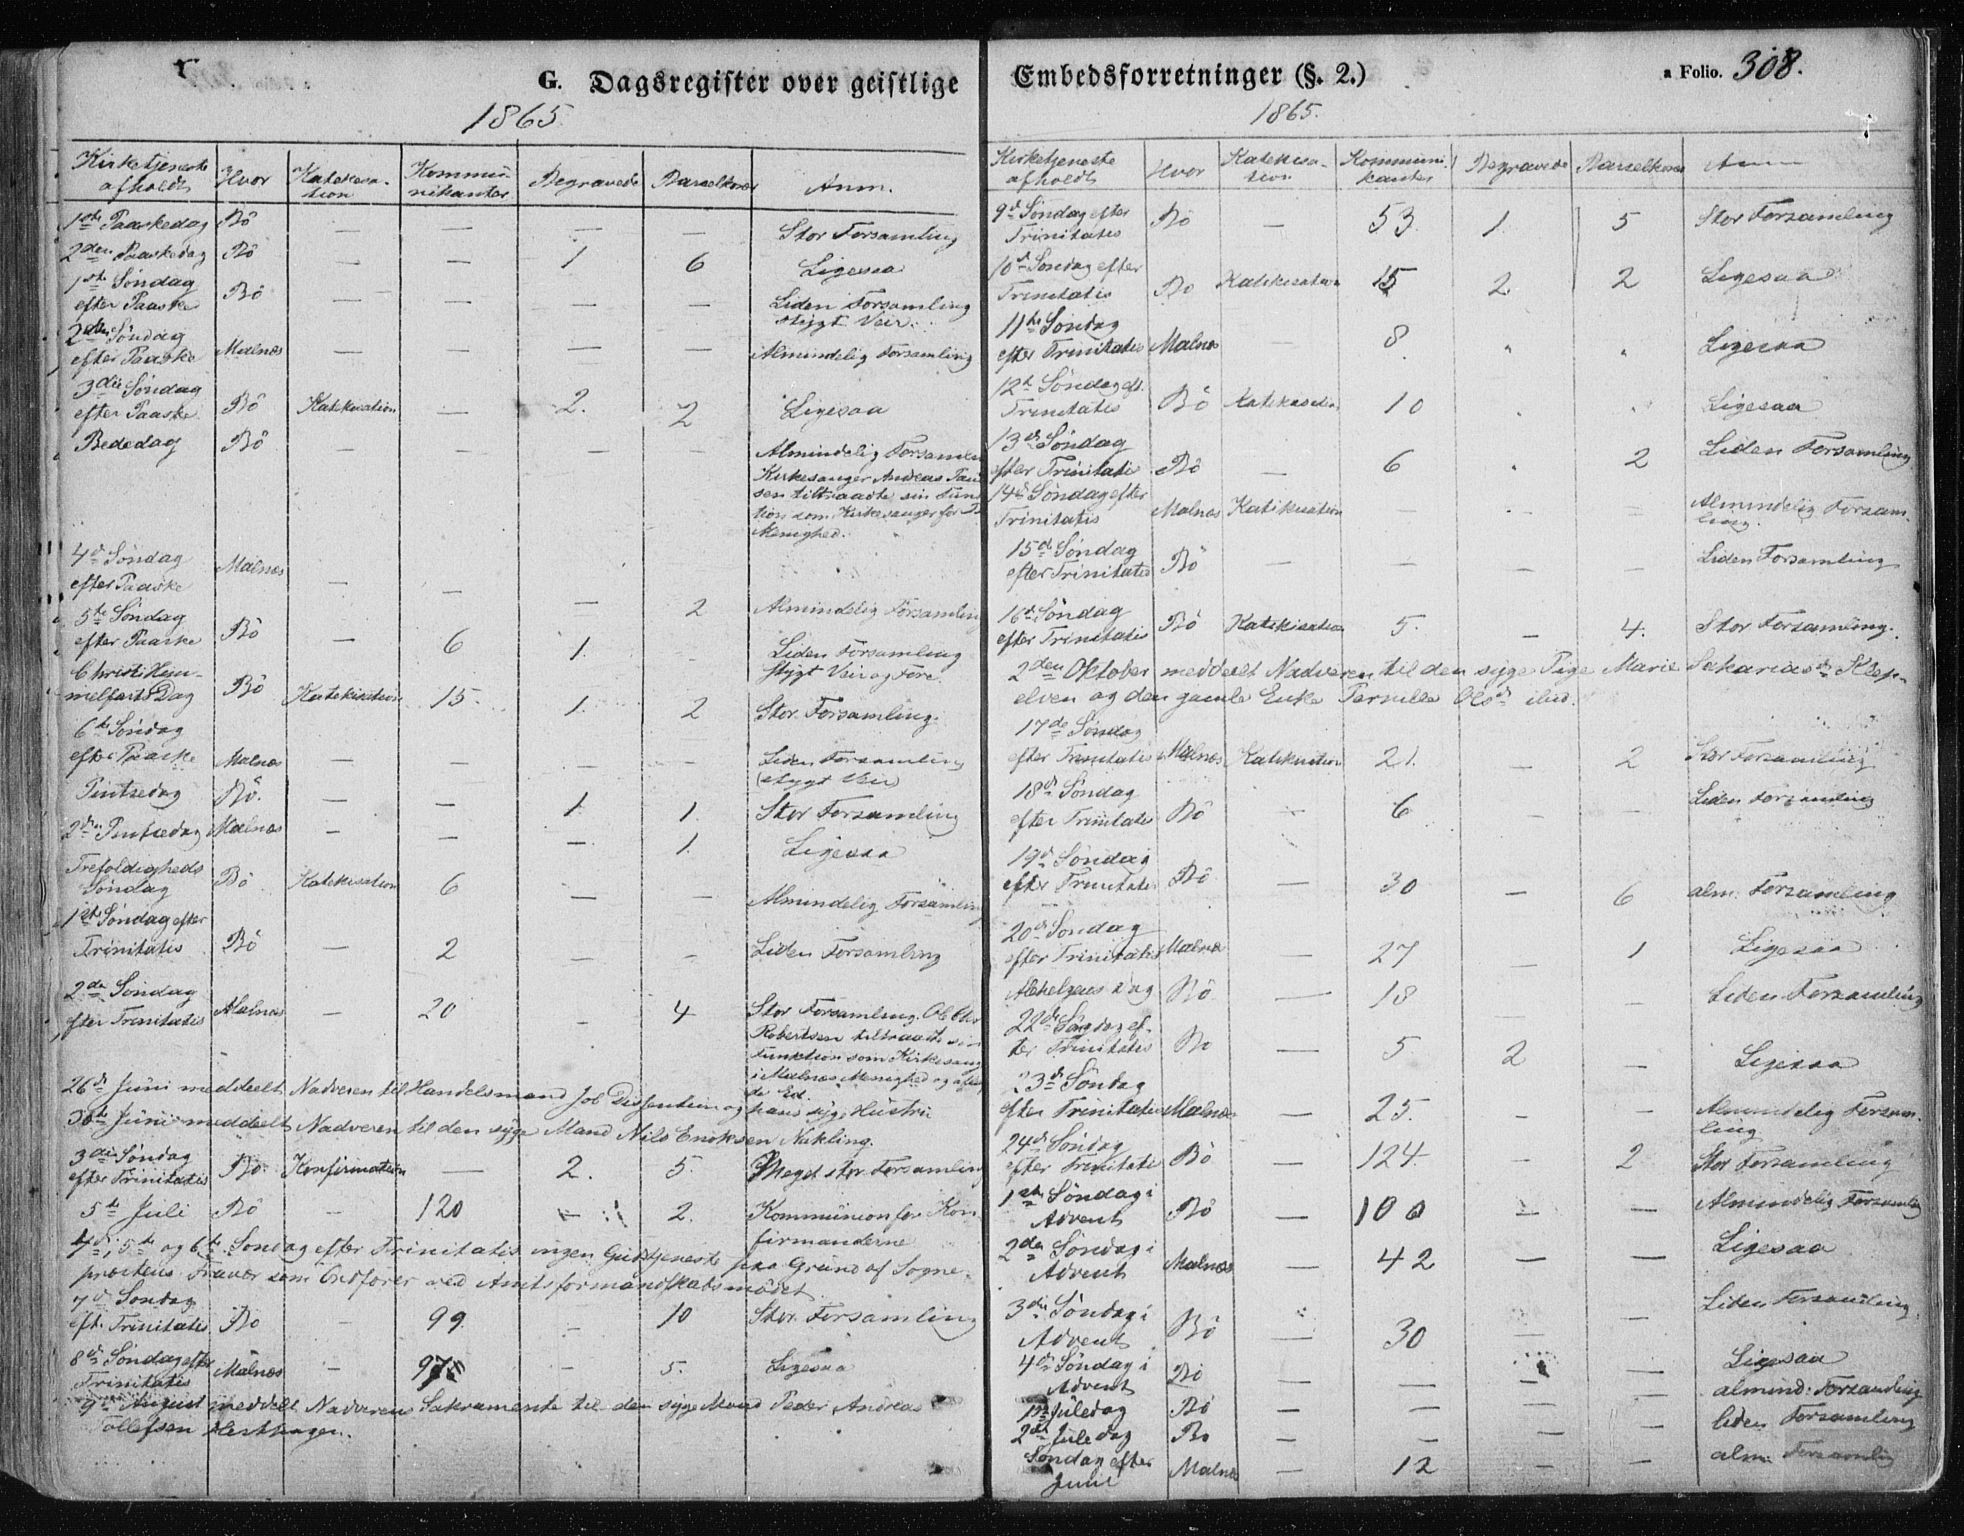 G. Dagsregister over geistlige
1865
Kirketjeneste afholdt | Hvor | Katekesation | Kommunikanter | Begravede | Barselkoner | Anm.
1ste Paaskedag | Bö | — | — | — | — | Stor Forsamling
2den Paaskedag | Bö | — | — | 1 | 6 | Ligesaa
1ste Söndag
efter Paaske | Bö | — | — | — | — | Liden Forsamling
stygt Veir.
2den Söndag
efter Paaske | Malnæs | — | — | — | — | Almindelig Forsamling
3die Söndag
efter Paaske | Bö | Katekisation | — | 2. | 2 | Ligesaa
Bededag | Bö | — | — | — | — | Almindelig Forsamlin
Kirkesanger Andreas
sen tiltraadte sin Funk
tion som Kirkesanger for
Menighed.
4de Söndag
efter Paaske | Malnæs | — | — | — | 2 | Almindelig Forsamling
5te Söndag
efter Paaske | Bö | — | 6 | 1. | — | Liden Forsamling
Stygt Veir og Före.
Christi Him-
melfarts Dag | Bö | Katekisation | 15. | 1. | 2 | Stor Forsamling.
6te Söndag
efter Paaske | Malnæs | — | — | — | — | Liden Forsamling
(stygt Veir)
Pintsedag | Bö. | — | — | 1. | 1. | Stor Forsamling
2den Pintsedag | Malnæs | — | — | — | 1. | Ligesaa
Trefoldigheds
Söndag | Bö | Katekisation | 6 | — | — | Almindelig Forsamling
1ste Söndag efter
Trinitatis | Bö | — | 2 | — | — | Liden Forsamling
2den Söndag
efter Trinitatis | Malnæs | — | 20 | — | 4 | Stor Forsamling.
Robertsen tiltraadte sin
Funktion som Kirkesang
i Malnæs Menighed og
de Ed.
26de Juni meddeelt Nadveren til Handelsmand Job og hans syge Hustru
30te Juni meddeelt Nadveren til den syge Mand Nils Enoksen Nykling.
3die Söndag
efter Trinitatis | Bö | Konfirmation | — | 2. | 5. | Meget stor Forsamling
5te Juli | Bö | — | 120 | — | 2. | Kommunion for Kon-
firmanderne
4de, 5te og 6te Söndag efter Trinitatis ingen Gudstjeneste paa Grund af Sogne-
præstens Fravær som Ordförer ved Amtsformandskabsmödet.
7de Söndag
eft. Trinitatis | Bö | — | 99 | — | 10 | Stor Forsamling
8de Söndag efter
Trinitatis | Malnæs | — | 97 | — | 5. | Ligesaa
9de August meddelt Nadverens Sakramente til den syge Mand Peder Andreas
Tollefsen
Embedsforretninger (§. 2.)
a Folio. 308.
1865.
Kirketjeneste afholdt | Hvor | Katekisation | Kommunikanter | Begravede | Barselkoner | Anm
9de Söndag efter
Trinitatis | Bö | — | 53. | 1. | 5 | Stor Forsamling
10de Söndag efter
Trinitatis | Bö | Katekisation | 15 | 2. | 2 | Ligesaa
11te Söndag
efter Trinitatis | Malnæs | — | 8. | " | " | Ligesaa
12te Söndag eft.
Trinitatis | Bö | Katekisation | 10 | . | . | Ligesaa
13de Söndag
efter Trinitatis | Bö | — | 6 | . | 2 | Liden Forsamling
14de Söndag efter
Trinitatis | Malnæs | Katekisation | — | — | — | Almindelig Forsam-
ling.
15de Söndag
efter Trinitatis | Bö | — | — | — | — | Liden Forsamling
16de Söndag
efter Trinitatis | Bö | Katekisation | 5. | — | 4. | Stor Forsamling.
2den Oktober meddeelt Nadveren til den syge Pige Marie Sakariasdr Klep-
elven og den gamle Enke Pernille Olsdr ibid.
17de Söndag
efter Trinitatis | Malnæs | Katekisation | 21. | — | 2 | Stor Forsamling
18de Söndag
efter Trinitatis | Bö | — | 6 | — | — | Liden Forsamling
19de Söndag
efter Trinitatis | Bö | — | 30 | — | 6 | alm. Forsamling
20de Söndag
efter Trinitatis | Malnæs | | 27 | — | 1 | Ligesaa
Allehelgens Dag | Bö | — | 18 | — | — | Liden Forsamling
22de Söndag ef-
ter Trinitatis | Bö | — | 5. | 2 | — | Ligesaa
23de Söndag
efter Trinitatis | Malnæs | — | 25. | — | — | Almindelig Forsam-
ling
24de Söndag
efter Trinitatis | Bö | — | 124. | — | 2 | Stor Forsamling
1ste Söndag i
Advent | Bö | — | 100 | — | — | Almindelig Forsamling
2den Söndag i
Advent | Malnæs | — | 42 | — | — | Ligesaa
3die Söndag i
Advent | Bö | — | 30 | — | — | Liden Forsamling.
4de Söndag i
Advent | Bö | — | — | — | — | Ligesaa
1ste Juledag | Bö | — | — | — | — | almind: Forsamling
2den Juledag | Bö | — | — | — | — | liden Forsamling
Söndag efter
Juul | Malnæs | — | 12 | — | — | alm. Forsamling